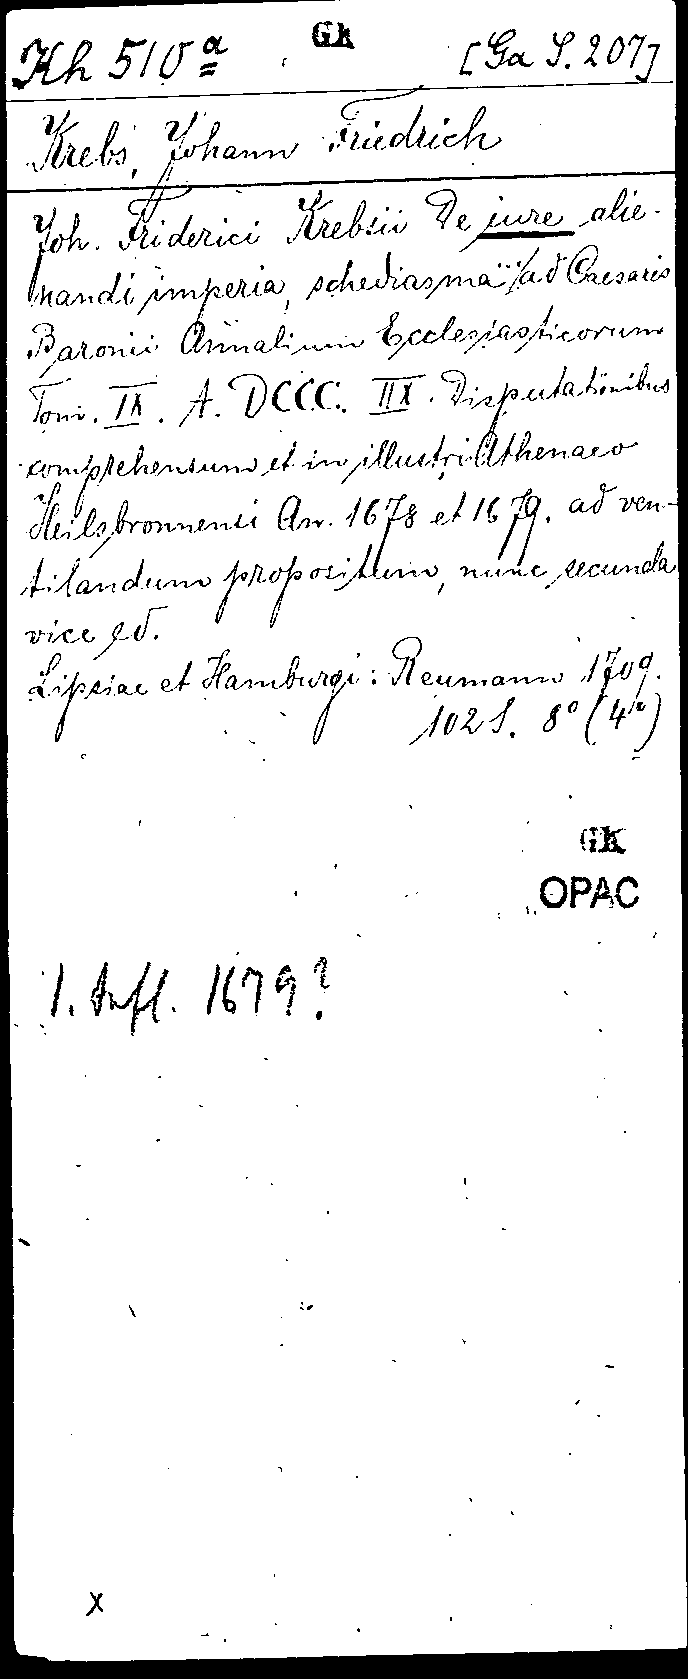 Kh 510 a GK [Ga S. 207]
Krebs, Johann Friedrich
Joh. Friderici Krebsii De iure alie-
nandi imperia, schediasma ... /ad Caesaris
Baronii Annalium Ecclesiasticorum
Tom. IX. A. DCCC. IIX. Disputationibus
comprehensum et in illustri Athenaeo
Heilsbronnensi An. 1678 et 1679. ad ven-
tilandum propositum, nunc secunda
vice ed.
Lipsiae et Hamburgi: Reumann 1709.
102 S. 8° (4°)
GK
OPAC
1. Aufl. 1679?
x